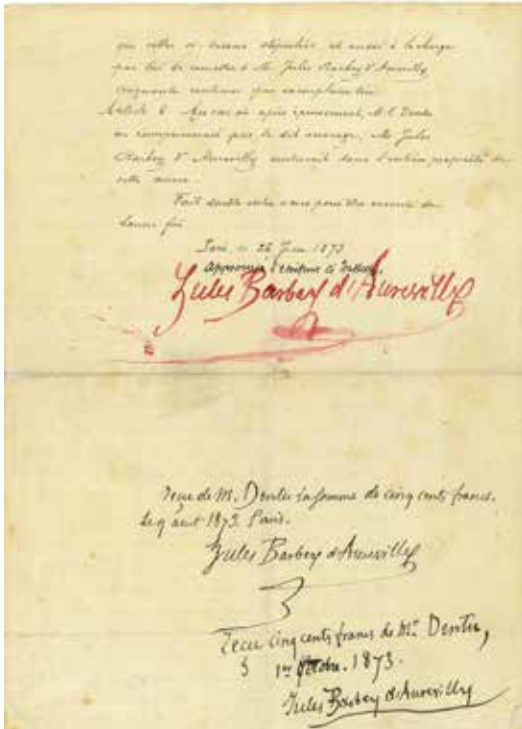 que celles ci dessus stipulées, et aussi à la charge
par lui de remettre à M. Jules Barbey d'Aurevilly
cinquante centimes par exemplaire tiré.
Article 6 Au cas où après épuisement, M. E. Dentu
ne réimprimerait pas le dit ouvrage, M. Jules
Barbey d'Aurevilly rentrerait dans l'entière propriété de
cette œuvre.
Fait double entre nous pour être exécuté de
bonne foi
Paris, ce 26 1873
approuvé l'écriture ci dessus,
Jules Barbey d'Aurevilly
Reçu de M. Dentu la somme de cinq cents francs.
Le 9 août 1873. Paris.
Jules Barbey d'Aurevilly
Reçu cinq cents francs de Mr. Dentu,
1er octobre. 1873.
Jules Barbey d'Aurevilly